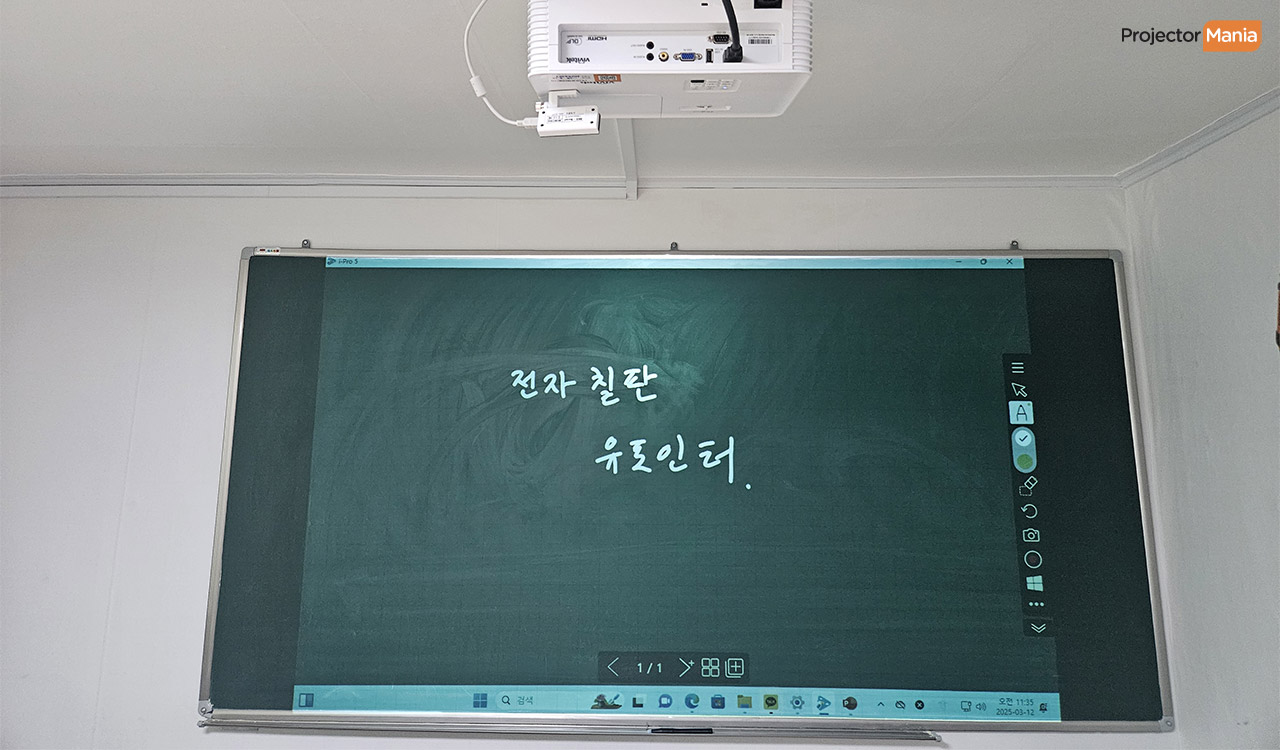 Projector Mania
HDMI
vivitek
i-Pro 5
전자 칠판
유포인터.
A
1 / 1
검색
오전 11:35
2025-03-12